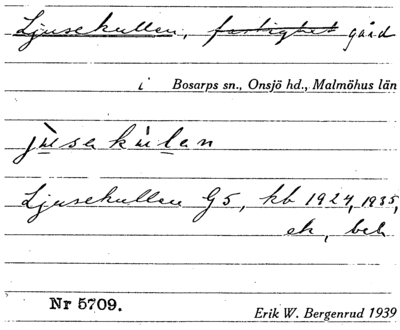 Ljusekullen, fastighet gård
i Bosarps sn., Onsjö hd., Malmöhus län
jusakulan
Ljusekullen G5, kb 1924, 1935,
ek, beb
Nr 5709.
Erik W. Bergenrud 1939